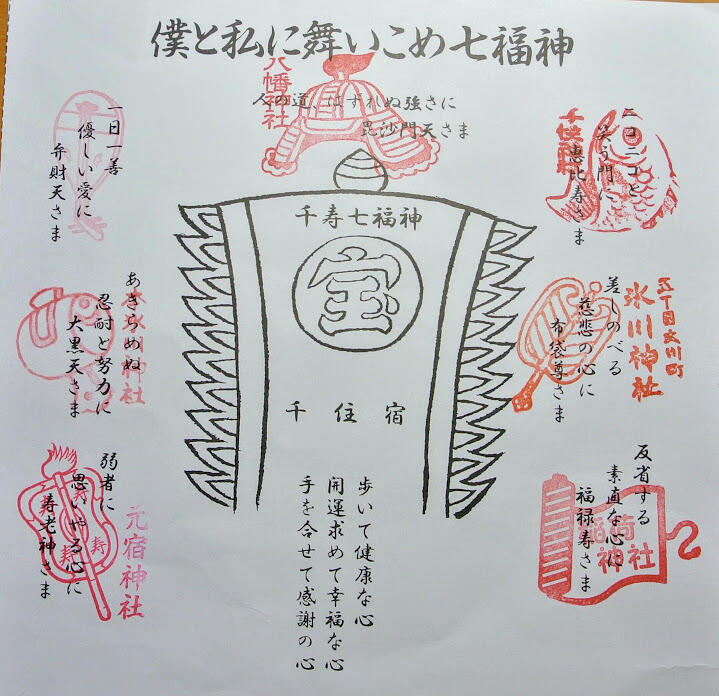 僕と私に舞いこめ七福神
八幡神社
人の道、はずれぬ強さに
毘沙門天さま
ニコニコと
笑う門に
恵比寿さま
一日一善
優しい愛に
弁財天さま
千寿七福神
宝
千住宿
五丁目大川町
氷川神社
差しのべる
慈悲の心に
布袋尊さま
氷川神社
あきらめぬ
忍耐と努力に
大黒天さま
反省する
素直な心に
福禄寿さま
稲荷
神社
弱者に
思いやる心に
寿老神さま
寿
寿
寿
元宿神社
歩いて健康な心
開運求めて幸福な心
手を合せて感謝の心